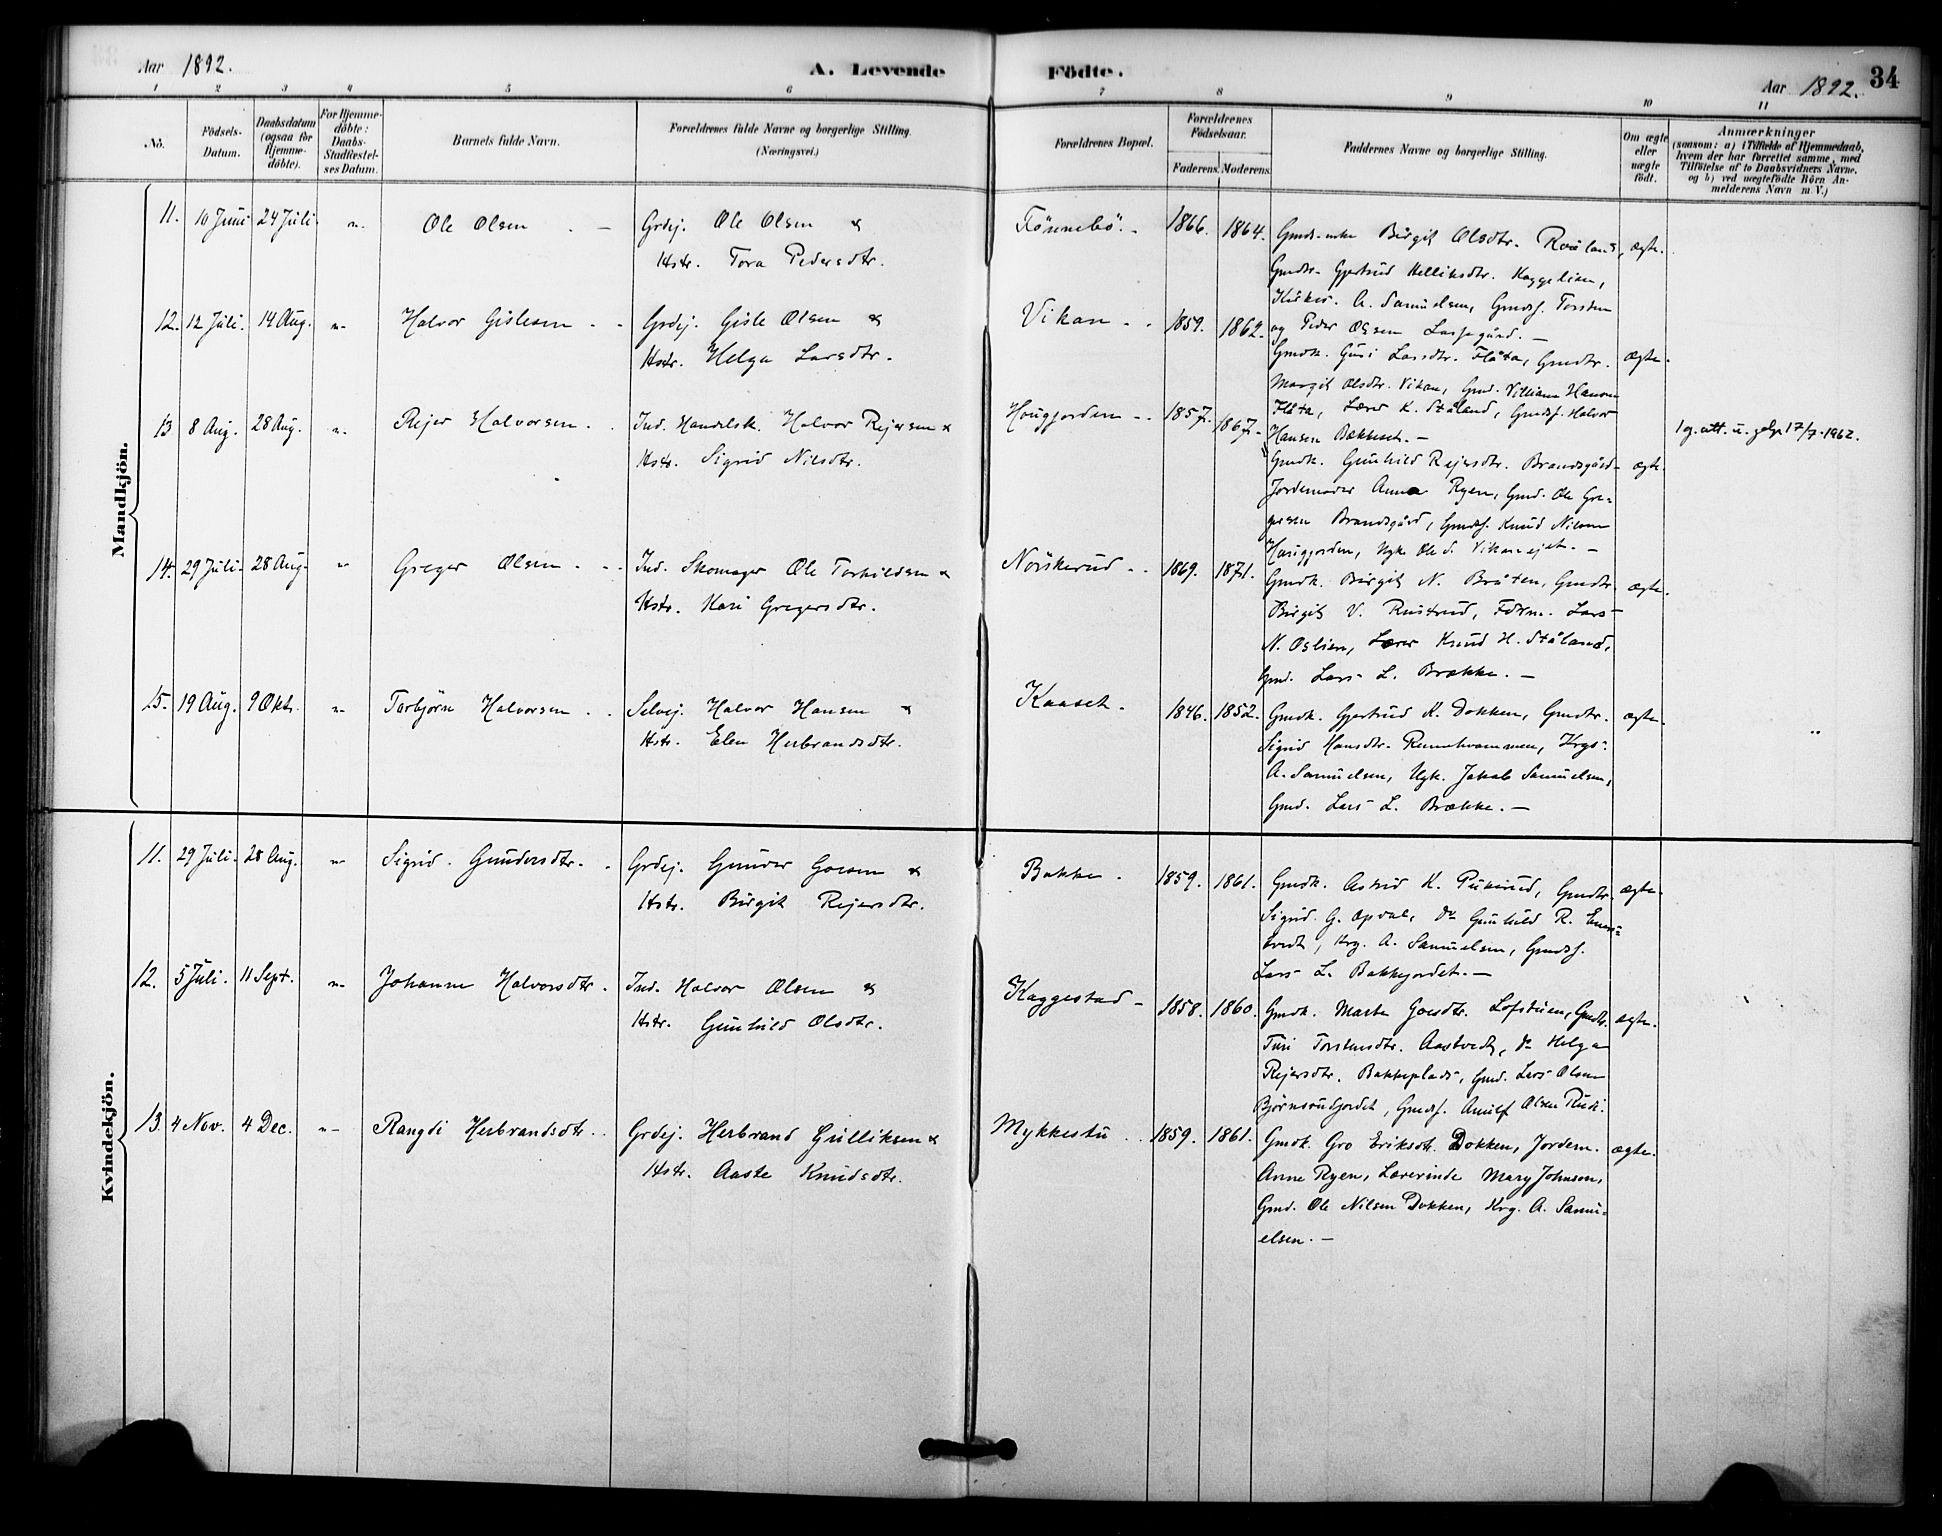 Aar 1892.
A. Levende Födte.
Aar 1892. 34
1 2 3 4 5 6 7 8 9 10 11
No.
Födsels-Datum.
Daabsdatum (ogsaa for Hjemme-döbte).
For Hjemme-döbte: Daabs-Stadfæstel-ses Datum.
Barnets fulde Navn.
Forældrenes fulde Navne og borgerlige Stilling. (Næringsvei.)
Forældrenes Bopæl.
Forældrenes Födselsaar.
Faderens. Moderens.
Faddernes Navne og borgerlige Stilling.
Om ægte eller uægte födt.
Anmærkninger
(saasom: a) i Tilfælde af Hjemmedaab,
hvem der har forrettet samme, med
Tilföielse af to Daabsvidners Navne.
og b) ved uægtefödte Börn An-
melderens Navn m. V.)
Mandkjön.
11. 10 Juni 24 Juli. "- Ole Olsen . - Grdej. Ole Olsen &
Hstr. Tora Pedersdtr.
Fönnebö. - 1866. 1864.
Gmds-enke Birgit Olsdtr. Röiland, ægte.
Gmdtr. Gjertrud Helliksdtr. Kaggelien,
Kirkes. A. Samuelsen, Gmdsf. Torsten
og Peder Olsen Lassegård. -
12. 12 Juli. 14 Aug. "- Halvor Gislesen - - Grdej. Gisle Olsen &
Hstr. Helga Larsdtr.
Vikan - . 1859. 1862.
Gmdk. Guri Larsdtr. Flåta, Gmdtr. ægte.
Margit Olsdtr. Vikan, Gmd. Villiam Hansen
Flåta, Lærer K. Ståland, Gmdsf. Halvor
Hansen Bækkeset. -
13 8 Aug. 28 Aug. "- Rejer Halvorsen . Ind. Handelsk. Halvor Rejersen &
Hstr. Sigrid Nilsdtr.
Hougjorden - - 1857. 1867.
Gmdk. Gunhild Rejersdtr. Brandsgård- ægte.
Jordemoder Anna Ryen, Gmd. Ole Gre-
gersen Brandsgård, Gmdsf. Knud Nilsen
Hougjorden, Ugk. Ole S. Vikanejet. -
1 g. att. u. 17/7-1962.
14. 29 Juli. 28 Aug. "- Greger Olsen . - Ind. Skomager Ole Torkildsen &
Hstr. Kari Gregersdtr.
Nörsterud - . 1869. 1871.
Gmdk. Birgit N. Bråten, Gmdtr. ægte.
Birgit V. Rustrud, Fdrm. Lars
N. Oslien, Lærer Knud H. Ståland,
Gmd. Lars L. Brække. -
15. 19 Aug. 9 Okt. "- Torbjörn Halvorsen . . Selvej. Halvor Hansen &
Hstr. Elen Herbrandsdtr.
Kaaset. 1846. 1852.
Gmdk. Gjertrud K. Dokken, Gmdtr. ægte.
Sigrid Hansdtr. Runnehvammen, Krgs.
A. Samuelsen, Ugk. Jakob Samuelsen,
Gmd. Lars L. Brække. -
Kvindekjön.
11. 29 Juli. 28 Aug. "- Sigrid Gundersdtr. . Grdej. Gunder Goesen &
Hstr. Birgit Rejersdtr.
Bakke . 1859. 1861.
Gmdk. Astrid K. Pukerud, Gmdtr. ægte.
Sigrid G. Opdal, do Gunhild R.
A. Samuelsen, Gmdsf.
Lars L. Bakkejordet. -
12. 5 Juli. 11 Sept. "- Johanne Halvorsdtr. . Ind. Halvor Olsen &
Hstr. Gunhild Olsdtr.
Kaggestad - 1858. 1860.
Gmdk. Marte Goesdtr. Lofstuen, Gmdtr. ægte.
Turi Torstensdtr. Aastvedt, do Helga
Rejersdtr. Bakkeplads, Gmd. Lars Olsen
Björnsrudjordet, Gmdsf. Arnulf Olsen Rud.
13 4 Nov. 4 Dec. "- Rangdi Herbrandsdtr. . Grdej. Herbrand Gulliksen &
Hstr. Aaste Knudsdtr.
Mykkestu . . 1859. 1861.
Gmdk. Gro Eriksdtr. Dokken, Jordem. ægte.
Anne Ryen, Lærerinde Mary Johnsen,
Gmd. Ole Nilsen Dokken, Krg. A. Samu-
elsen. -